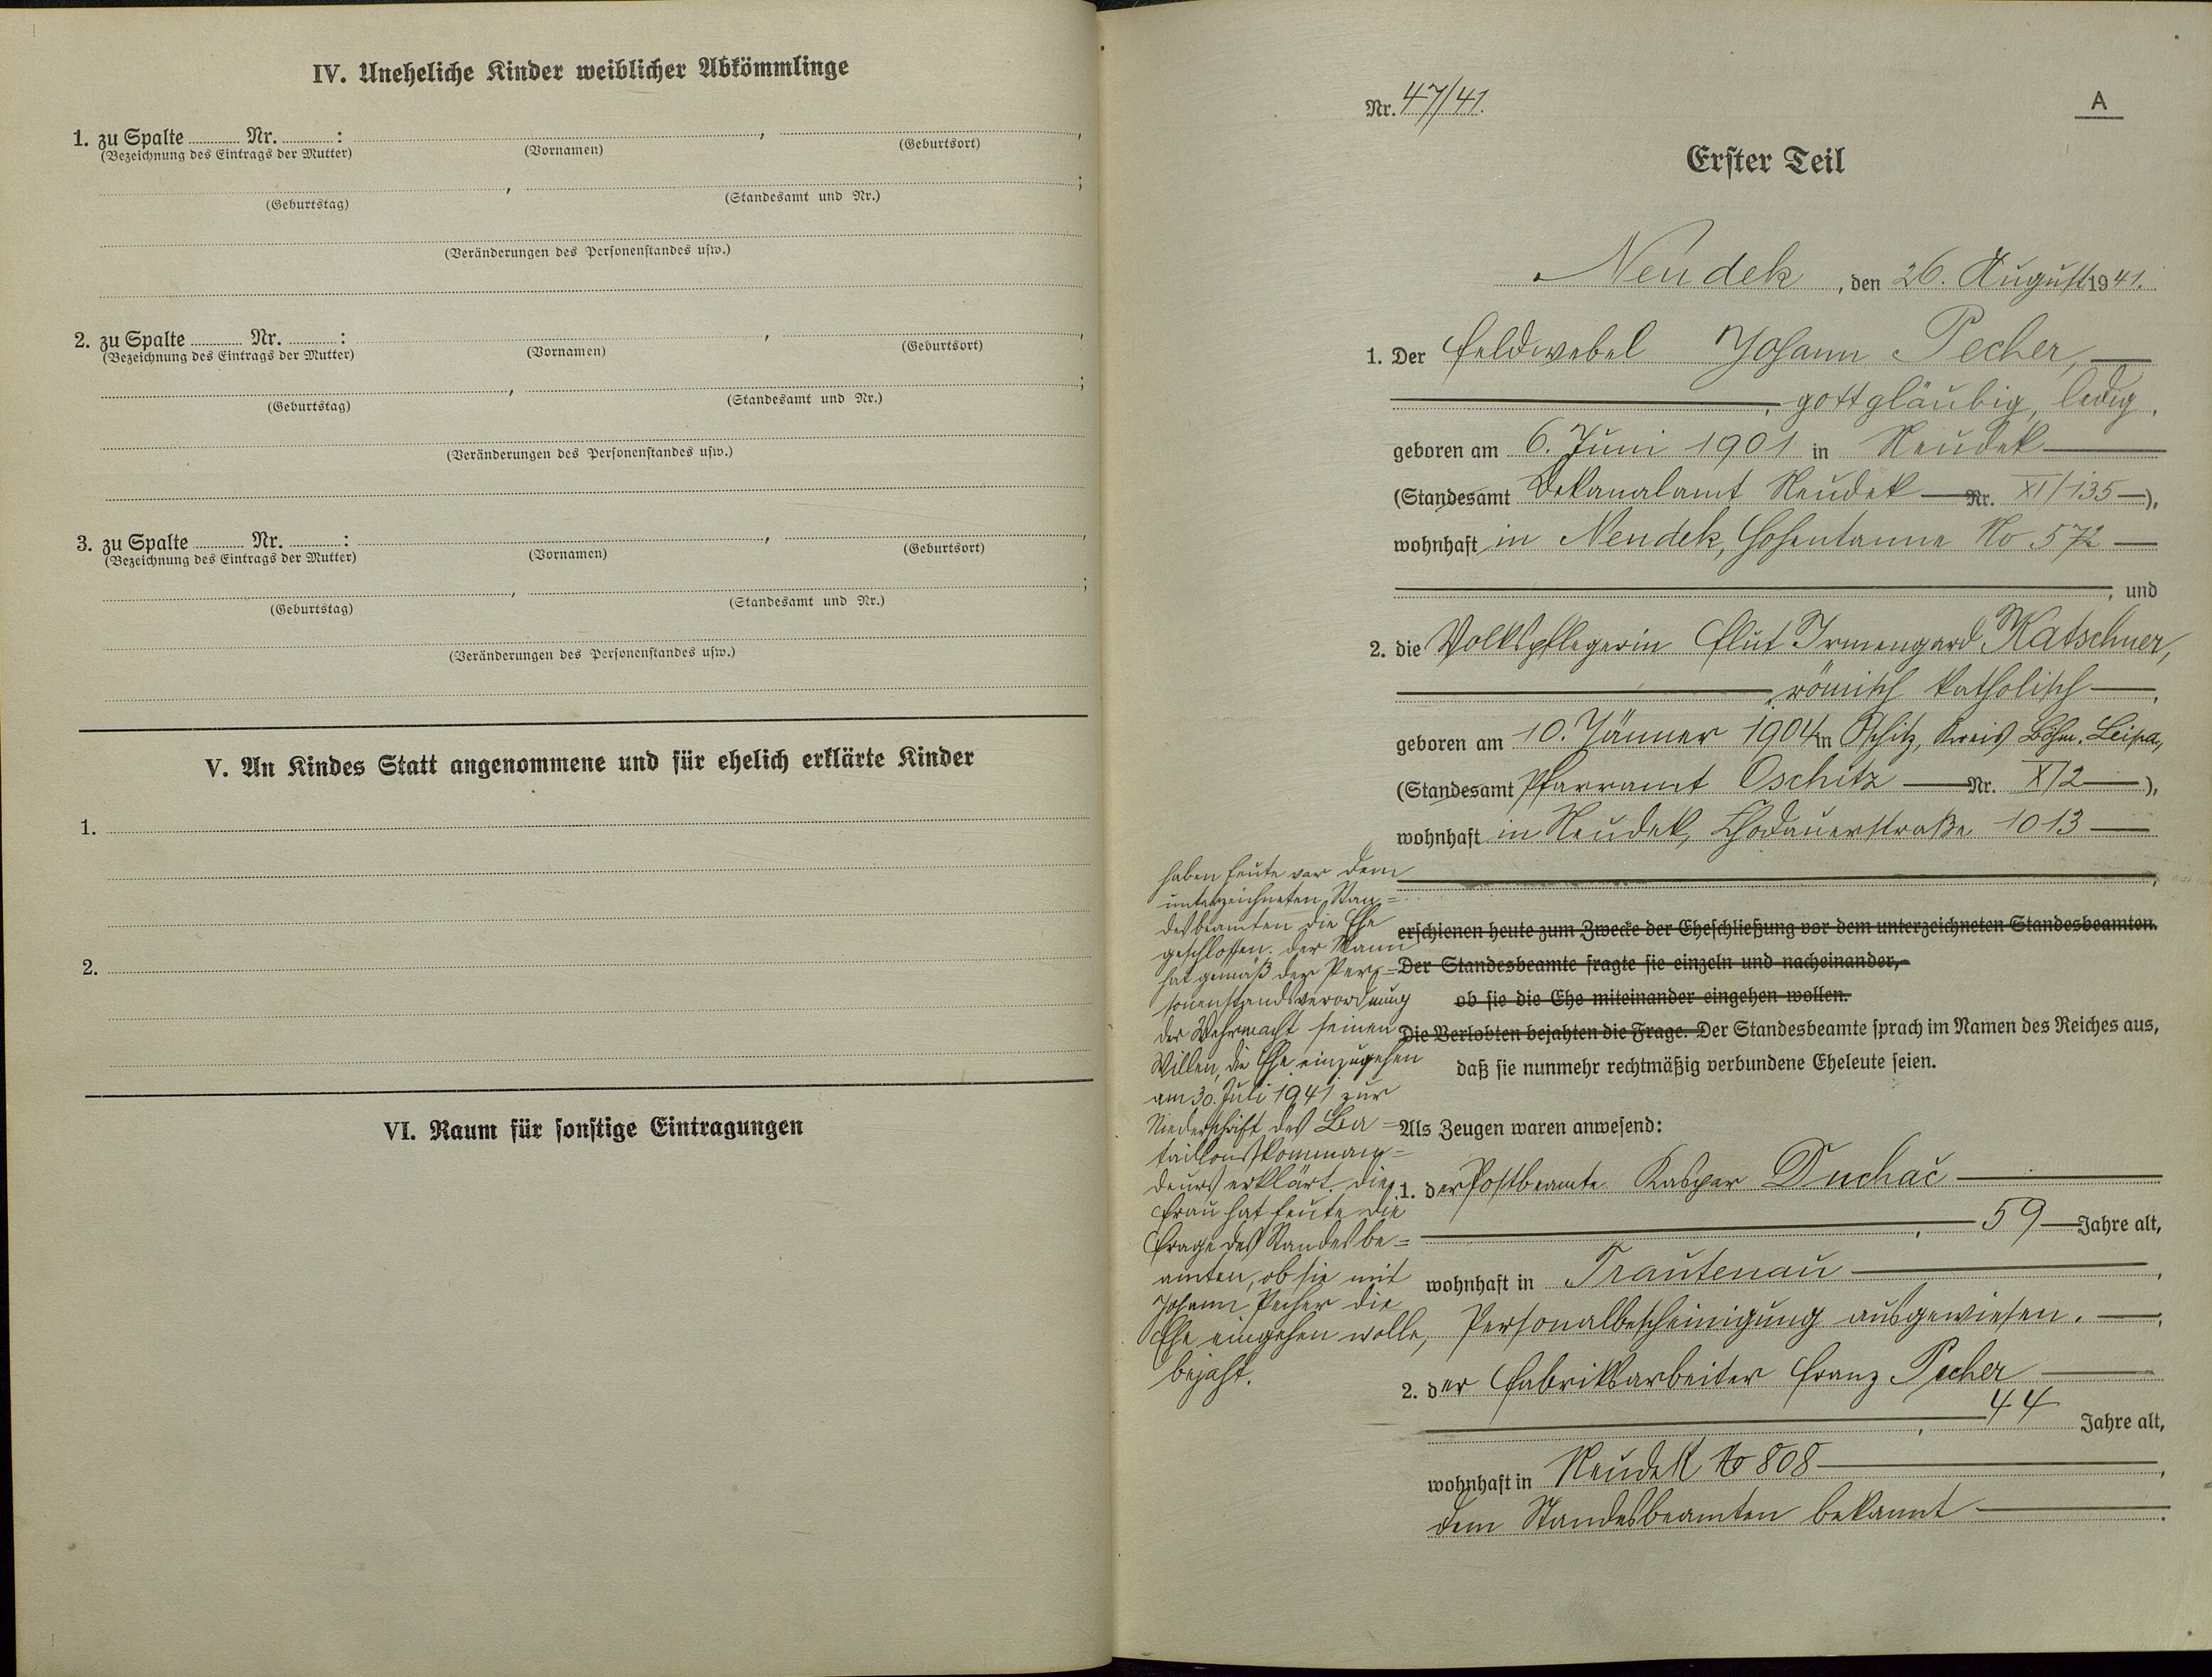 IV. Uneheliche Kinder weiblicher Abkömmlinge
1. zu Spalte ........ Nr. ........ : , ,
(Bezeichnung des Eintrags der Mutter) (Vornamen) (Geburtsort)
, ;
(Geburtstag) (Standesamt und Nr.)
(Veränderungen des Personenstandes usw.)
2. zu Spalte ........ Nr. ........ : , ,
(Bezeichnung des Eintrags der Mutter) (Vornamen) (Geburtsort)
, ;
(Geburtstag) (Standesamt und Nr.)
(Veränderungen des Personenstandes usw.)
3. zu Spalte ........ Nr. ........ : , ,
(Bezeichnung des Eintrags der Mutter) (Vornamen) (Geburtsort)
, ;
(Geburtstag) (Standesamt und Nr.)
(Veränderungen des Personenstandes usw.)
V. An Kindes Statt angenommene und für ehelich erklärte Kinder
1.
2.
VI. Raum für sonstige Eintragungen
Nr. 47/41.
A
Erster Teil
Neudek, den 26. August 1941.
1. Der Feldwebel Johann Pecher,
, gottgläubig, ledig,
geboren am 6. Juni 1901 in Neudek
(Standesamt Dekanalamt Neudek Nr. XI/135),
wohnhaft in Neudek, Hohentanne No 572
, und
2. die Volkspflegerin Irmengard Katschner,
, römisch katholisch,
geboren am 10. Jänner 1904 in Oschitz, Kreis Böhm. Leipa,
(Standesamt Pfarramt Oschitz Nr. X/2),
wohnhaft in Neudek, Chodauerstraße 1013
,
haben heute vor dem
unterzeichneten Stan=
desbeamten die Ehe
geschlossen. Der Mann
hat gemäß der Per=
sonenstandsverordnung
der Wehrmacht seinen
Willen, die Ehe einzugehen
am 30. Juli 1941 zur
Niederschrift des Ba=
taillonskomman=
deurs erklärt. Die
Frau hat heute die
Frage des Standesbe=
amten, ob sie mit
Johann Pecher die
Ehe eingehen wolle,
bejaht.
erschienen heute zum Zwecke der Eheschließung vor dem unterzeichneten Standesbeamten.
Der Standesbeamte fragte sie einzeln und nacheinander,
ob sie die Ehe miteinander eingehen wollen.
Die Verlobten bejahten die Frage. Der Standesbeamte sprach im Namen des Reiches aus,
daß sie nunmehr rechtmäßig verbundene Eheleute seien.
Als Zeugen waren anwesend:
1. der Postbeamte Kaspar Duchač
, 59 Jahre alt,
wohnhaft in Trautenau,
Personalbescheinigung ausgewiesen.
2. der Fabriksarbeiter Franz Pecher
, 44 Jahre alt,
wohnhaft in Neudek No 808,
dem Standesbeamten bekannt.